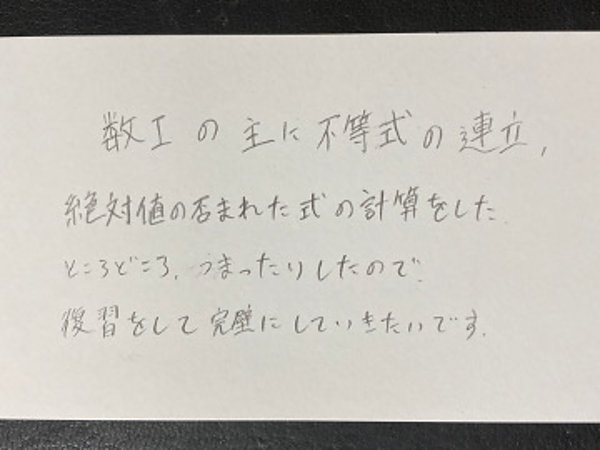 数Iの主に不等式の連立,
絶対値の否まれた式の計算をした.
ところどころ、つまったりしたので.
復習をして完璧にしていきたいです.